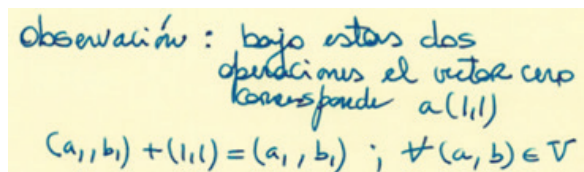 Observación : bajo estas dos
operaciones el vector cero
corresponde a (1,1)
(a₁,b₁) + (1,1) = (a₁,b₁) ; ∀(a,b) ∈ V